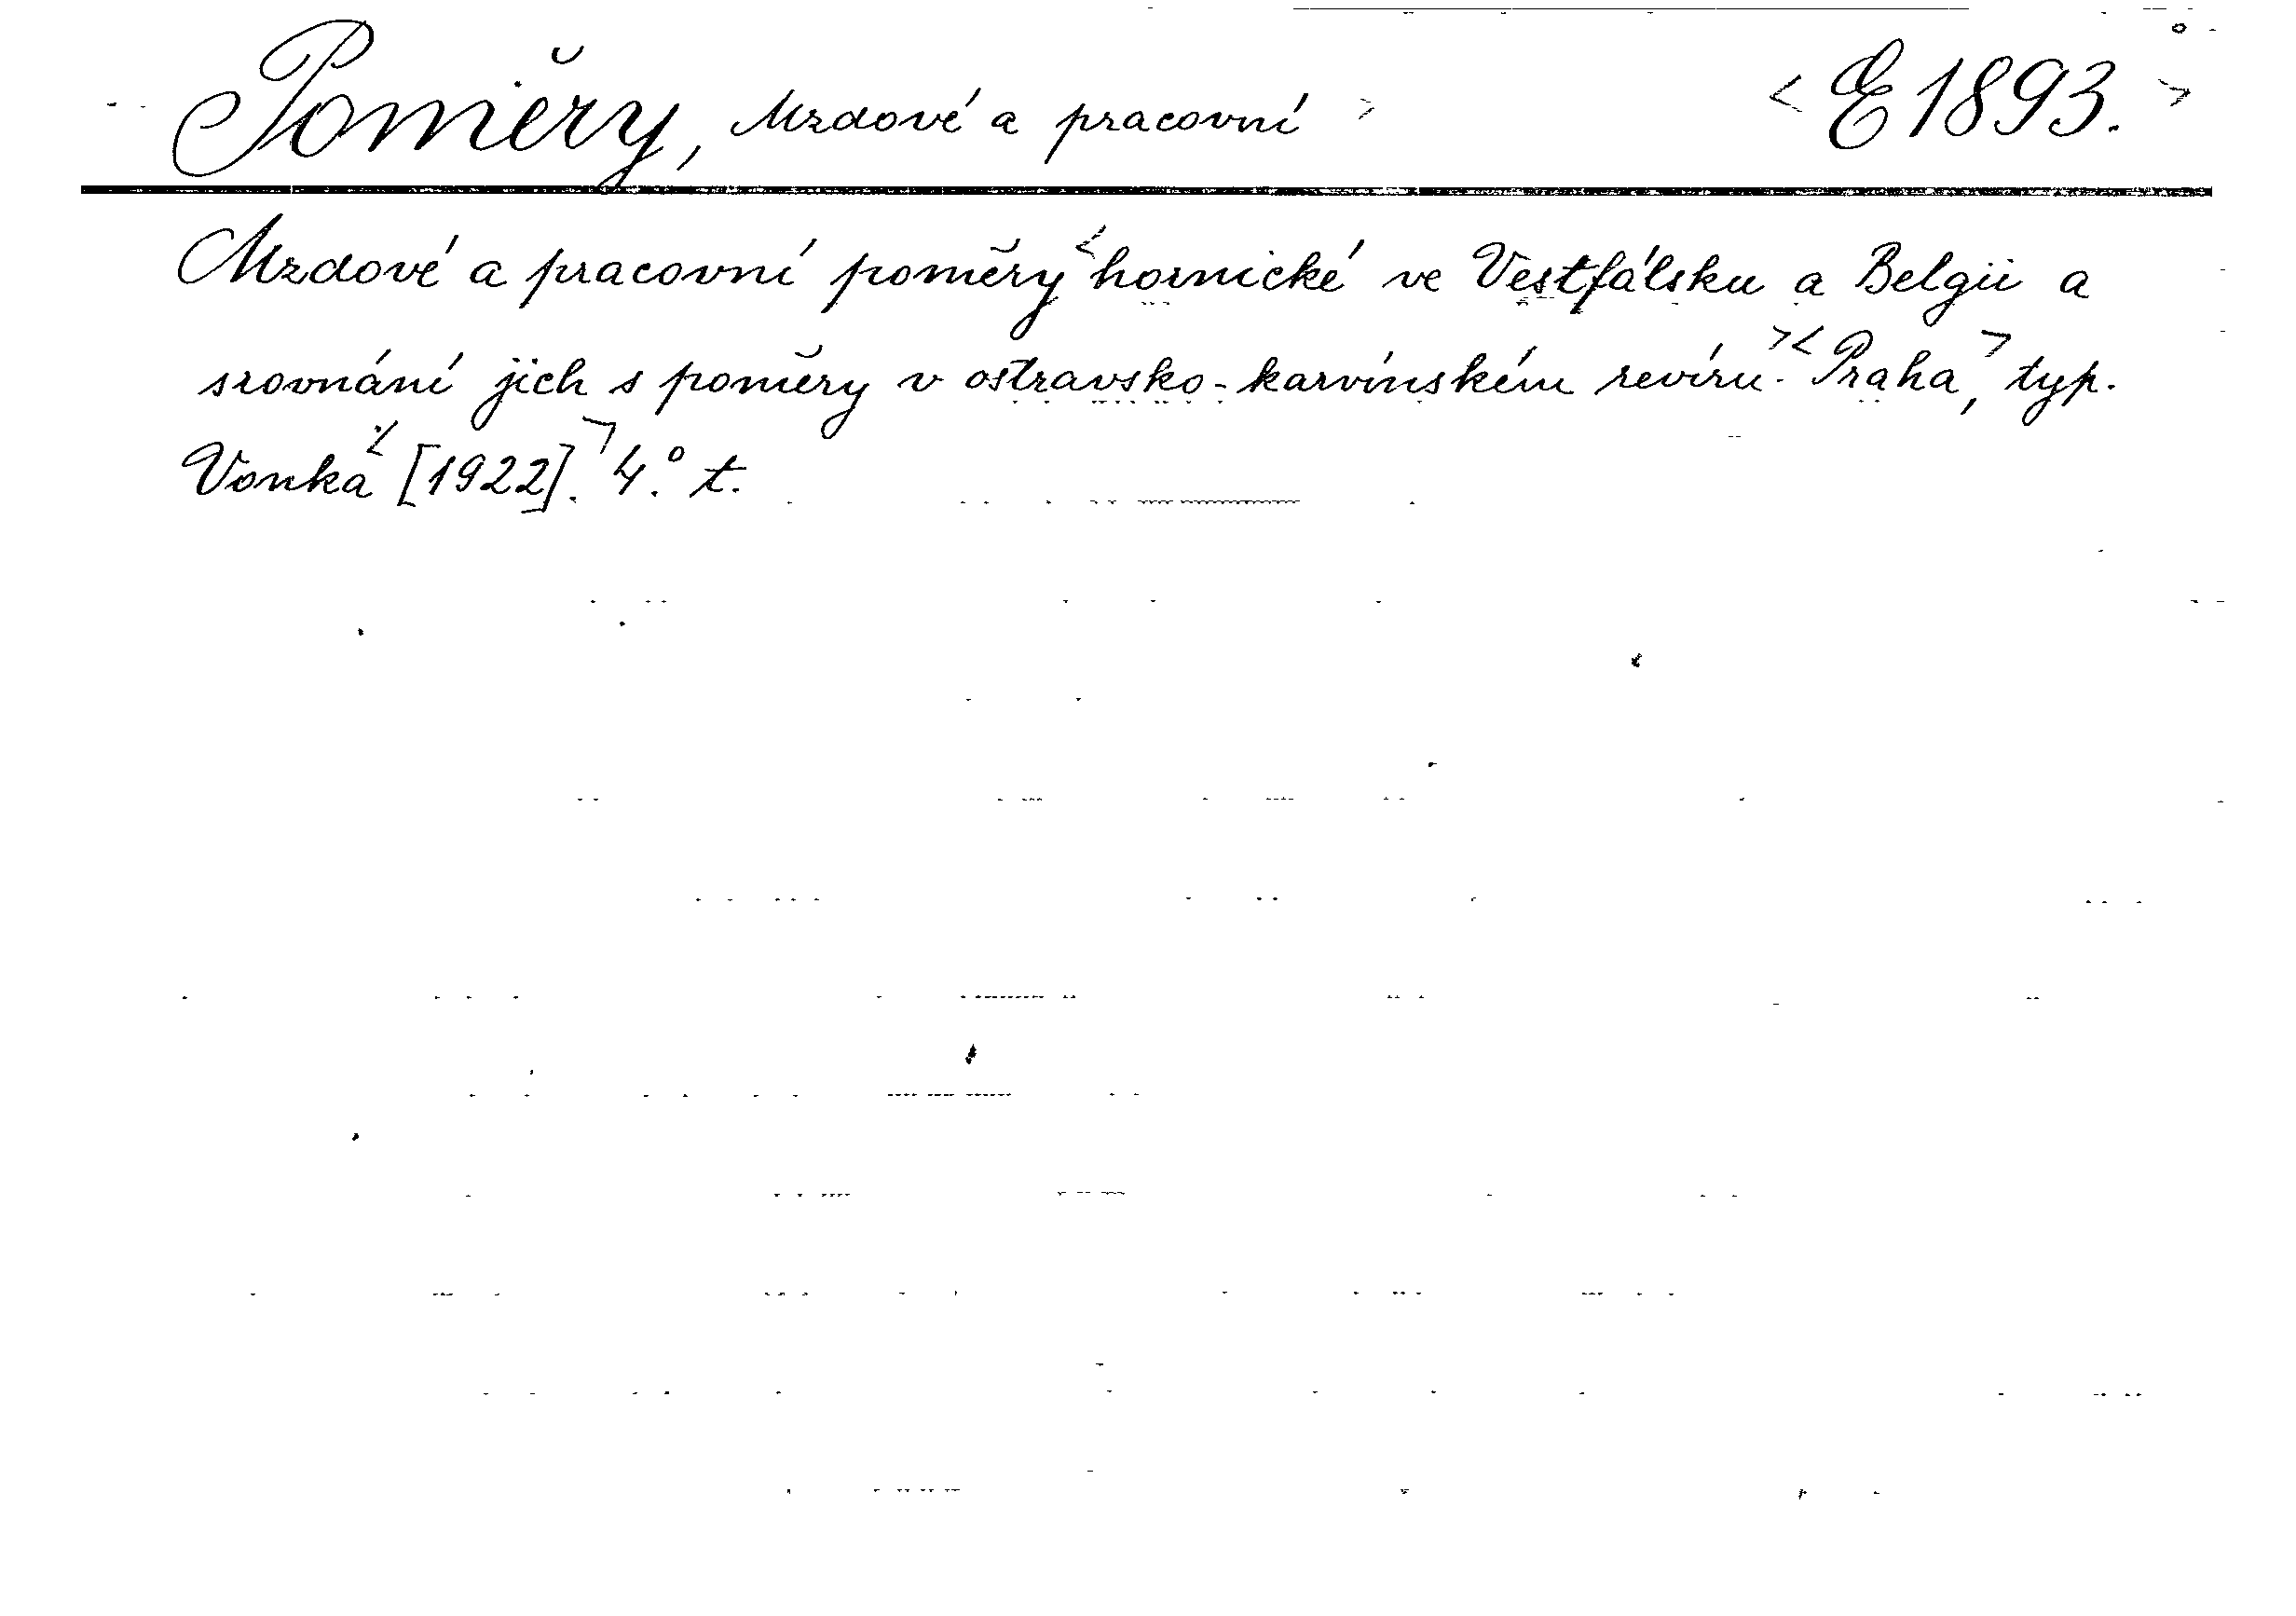 Poměry, Mzdové a pracovní > < E 1893. >
Mzdové a pracovní poměry < hornické ve Vestfálsku a Belgii a
srovnání jich s poměry v ostravsko-karvínském revíru. >< Praha, > typ.
Vonka < [1922]. > 4.° t.